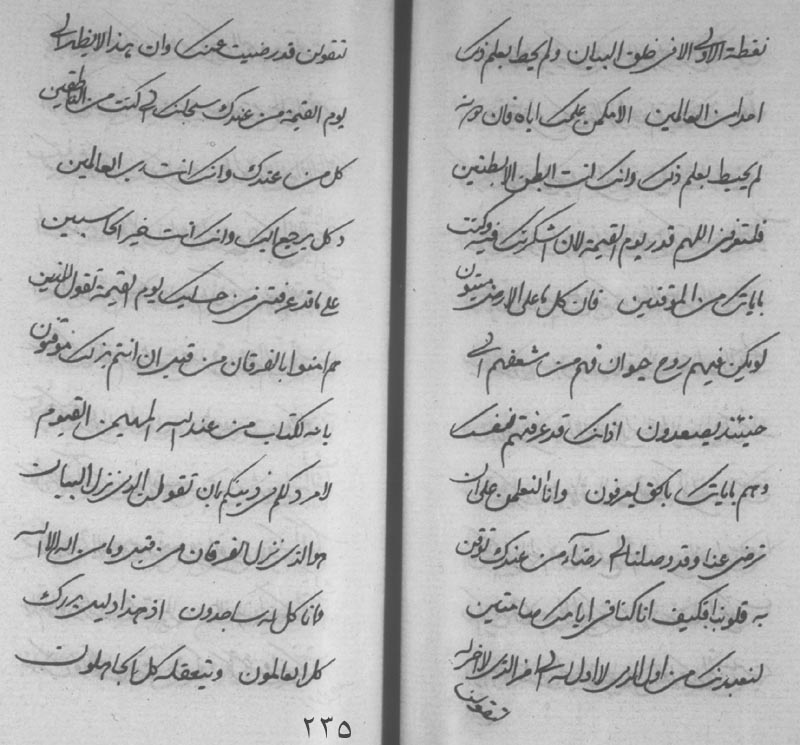 نقطة الاولى الا فى خلق البيان ولم يحيط بعلم ذلك
احد من العالمين الا مكمن علمك اياه فان دونه
لم يحيط بعلم ذلك وانك انت ابطن الابطنين
فلتعرفن اللهم قدر يوم القيمة لان اشكرنك فيه وكنت
باياتك من الموقنين فان كل ما على الارض ميتون
لو يكن فيهم روح حيوان فهم من مشعرهم الى
حينئذ يصعدون اذ انك قد عرفتهم نفسك
وهم باياتك بالحق يعرفون وانا لنعلمن على ان
ترضى عنا وقد وصلنا الى رضاء من عندك توقن
به قلوبنا فكيف انا كنا فى ايامك صامتين
لنعبدنك من اول الذى لا اول له الى اخر الذى لا اخر له
تتقون
لتقولن قد رضيت عنك وان هذا لا يظهر الى
يوم القيمة من عندك سبحنك انى كنت من الناطقين
كل من عندك وانك انت رب العالمين
وكل يرجع اليك وانك انت خير الحاسبين
على ما قد عرفتنى من حسابك يوم القيمة لقول الذين
هم امنوا بالفرقان من قبل ان انتم بذلك موقنون
بانه لكتاب من عند الله المهيمن القيوم
لا مرد لكم فى دينكم بان تقولن الذى نزل البيان
هو الذى نزل الفرقان من قبل وما من اله الا الله
وانا كل له ساجدون اذ هذا دليل يدركه
كل العالمون ويتعقله كل الجاهلون
٢٣٥